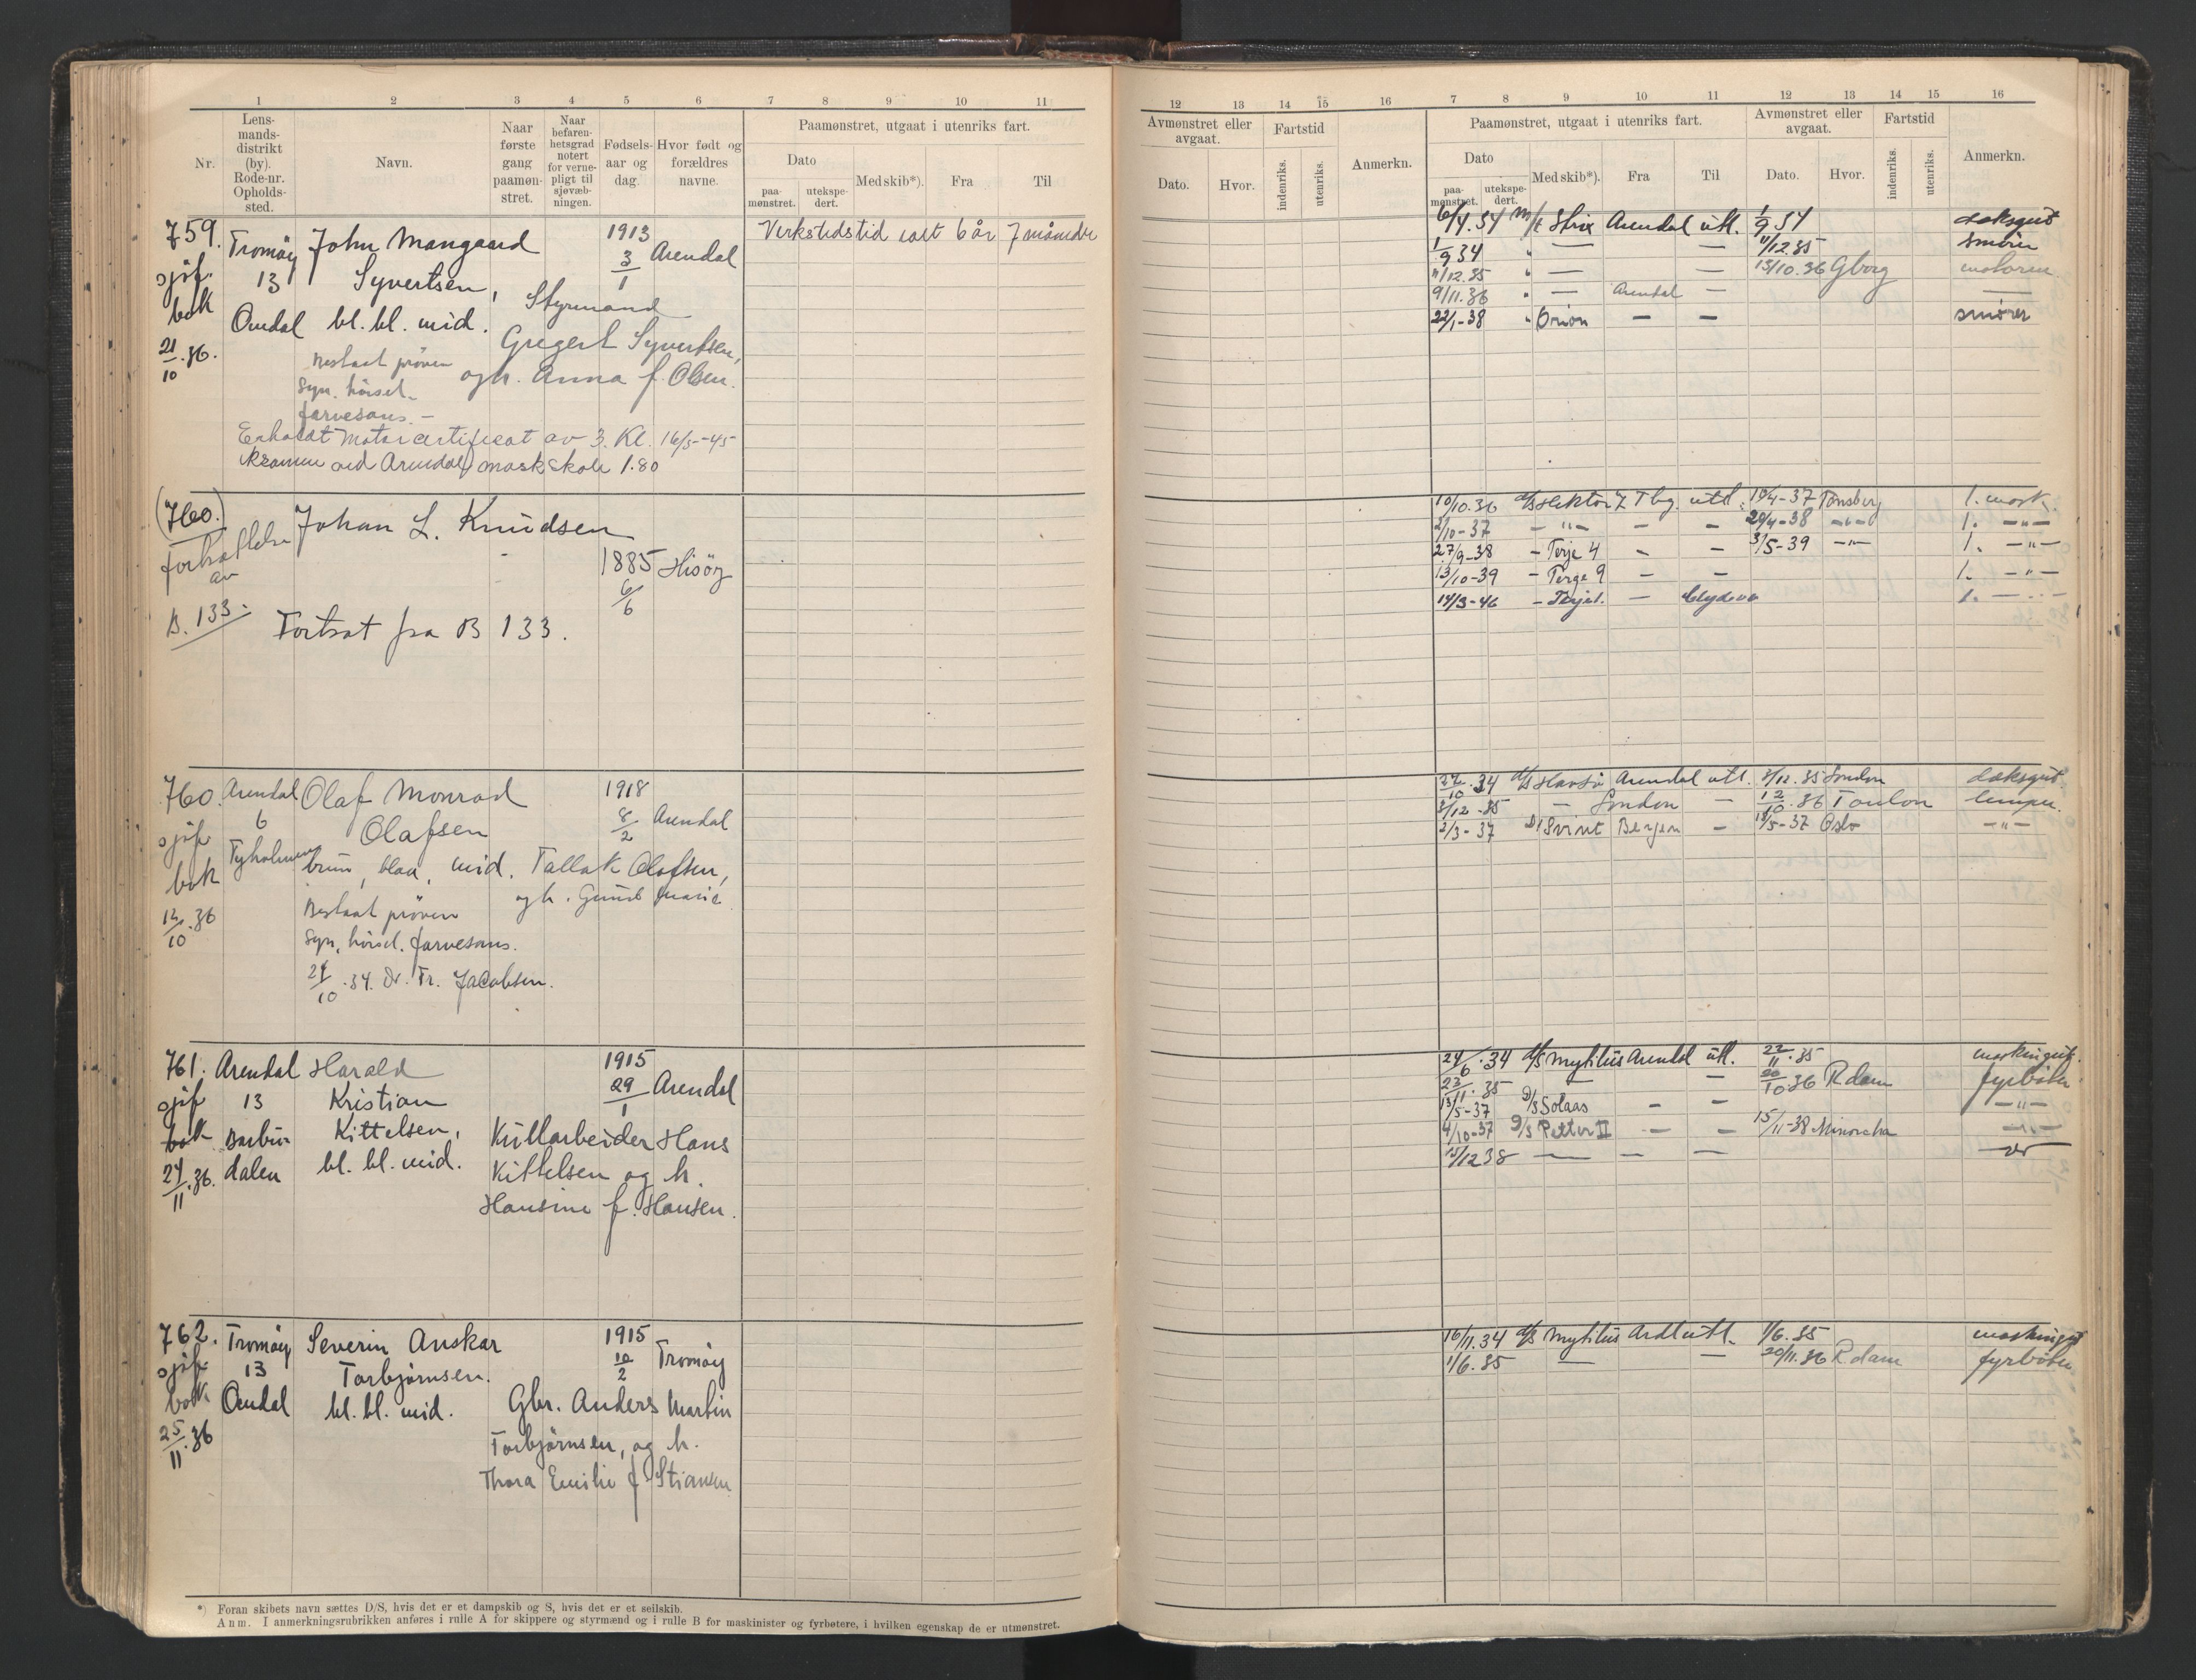 1 2 3 4 5 6 7 8 9 10 11
Nr.
Lens-
mands-
distrikt
(by).
Rode-nr.
Opholds-
sted.
Navn.
Naar
første
gang
paamøn-
stret.
Naar
befaren-
hetsgrad
notert
for verne-
pligt til
sjøvæb-
ningen.
Fødsels-
aar og
dag.
Hvor født og
forældres
navne.
Paamønstret, utgaat i utenriks fart.
Dato
paa-
mønstret.
utekspe-
dert.
Med skib*).
Fra
Til
759.
sjöf.
bok
21/10.36.
Tromöy
13
Omdal
John Mangaard
Syvertsen,
bl. bl. mid.
1913
3/1
Arendal
Styrmand
Gregert Syvertsen,
og h. Anna f. Olsen.
Verkstedstid ialt 6 år 7 måneder
Bestaat pröven
Syn. hörsel.
farvesans. –
Erholdt Motorcertificat av 3. Kl. 16/5-45
Eksamen ved Arendal maskskole 1.80
(760.)
fortsettelse
av
B. 133.
Johan L. Knudsen
1885
6/6
Hisöy
Fortsat fra B 133.
760.
sjöf
bok
12/10.36
Arendal
6
Tyholmen
Olaf Monrad
Olafsen
1918
8/2
Arendal
brun, blaa, mid. Tallak Olafsen,
og h. Gunda Marie
Bestaat pröven
Syn, hörsel. farvesans.
24/10.34. Dr. Fr. Jacobsen.
761.
sjöf
bok
24/11.36.
Arendal
13
Barbu-
dalen
Harald
Kristian
Kittelsen,
bl. bl. mid.
1915
29/1
Arendal
Kullarbeider Hans
Kittelsen og h.
Hansine f. Hansen.
762.
sjöf
bok
25/11.36
Tromöy
13
Omdal
Severin Anskar
Torbjörnsen.
bl. bl. mid.
1915
10/2
Tromöy
Gbr. Anders Martin
Torbjörnsen, og h.
Thora Emilie f. Stiansen
*) Foran skibets navn sættes D/S, hvis det er et dampskib og S, hvis det er et seilskib.
Anm. I anmerkningsrubrikken anføres i rulle A for skippere og styrmænd og i rulle B for maskinister og fyrbøtere, i hvilken egenskap de er utmønstret.
12 13 14 15 16 7 8 9 10 11 12 13 14 15 16
Avmønstret eller
avgaat.
Dato.
Hvor.
Fartstid
indenriks.
utenriks.
Anmerkn.
Paamønstret, utgaat i utenriks fart.
Dato
paa-
mønstret.
utekspe-
dert.
Med skib*).
Fra
Til
Avmønstret eller
avgaat.
Dato.
Hvor.
Fartstid
indenriks.
utenriks.
Anmerkn.
6/4.34 M/T Strix Arendal utl. 1/9 34 daksgut
1/9 34 " — — 11/12.35 smörer
11/12.35 " — — 13/10.36 Gborg motorm.
9/11.36 " — Arendal — —
22/1-38 " Orion — — smörer
10/10.36 d/s Hektor 7 Tbg. utl. 19/4-37 Tönsberg 1. mask.
2/10-37 – " – – – 20/4-38 –"– 1. –"–
27/9-38 – Terje 4 – – 31/5-39 –"– 1. –"–
13/10-39 – Terje 9 – – 1. –"–
14/3-46 – – 1. –"–
24/10.34 d/s Havsö Arendal utl. 3/12.35 London daksgut.
3/12.35 – London – 12/10.36 Toulon lemper.
2/3-37 D/S Svint Bergen – 18/5-37 Oslo –"–
24/6.34 d/s Mytilus Arendal utl. 22/11.35 maskingut.
22/11.35 — — 20/10.36 Rdam fyrböter
13/5-37 D/S Solaas – – –"–
4/10-37 D/S Petter II – – 15/11-38 Minorcha –"–
15/12 38 — — —
16/11.34 d/s Mytilus Ardl utl. 1/6.35 maskingut
1/6.35 — — 20/11.36 Rdam fyrböter